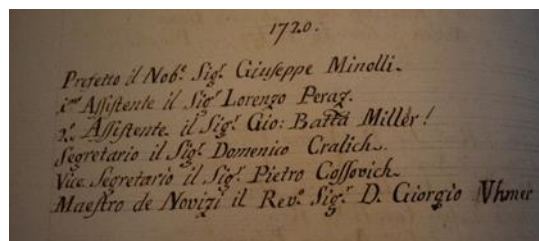 1720.
Prefetto il Nob.e Sig.r Giuseppe Minolli.
i.mo Assistente il Sig.r Lorenzo Peraz.
2.o Assistente il Sig.r Gio: Batta Miller!
Segretario il Sig.r Domenico Cralich.
Vice Segretario il Sig.r Pietro Cossovich.
Maestro de Novizi il Rev.o Sig.r D. Giorgio